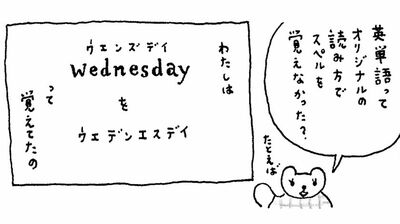 英単語って
オリジナルの
読み方で
スペルを
覚えなかった?
たとえば
わたしは
ウェンズデイ
Wednesday
を
ウェデンエスデイ
って
覚えてたの